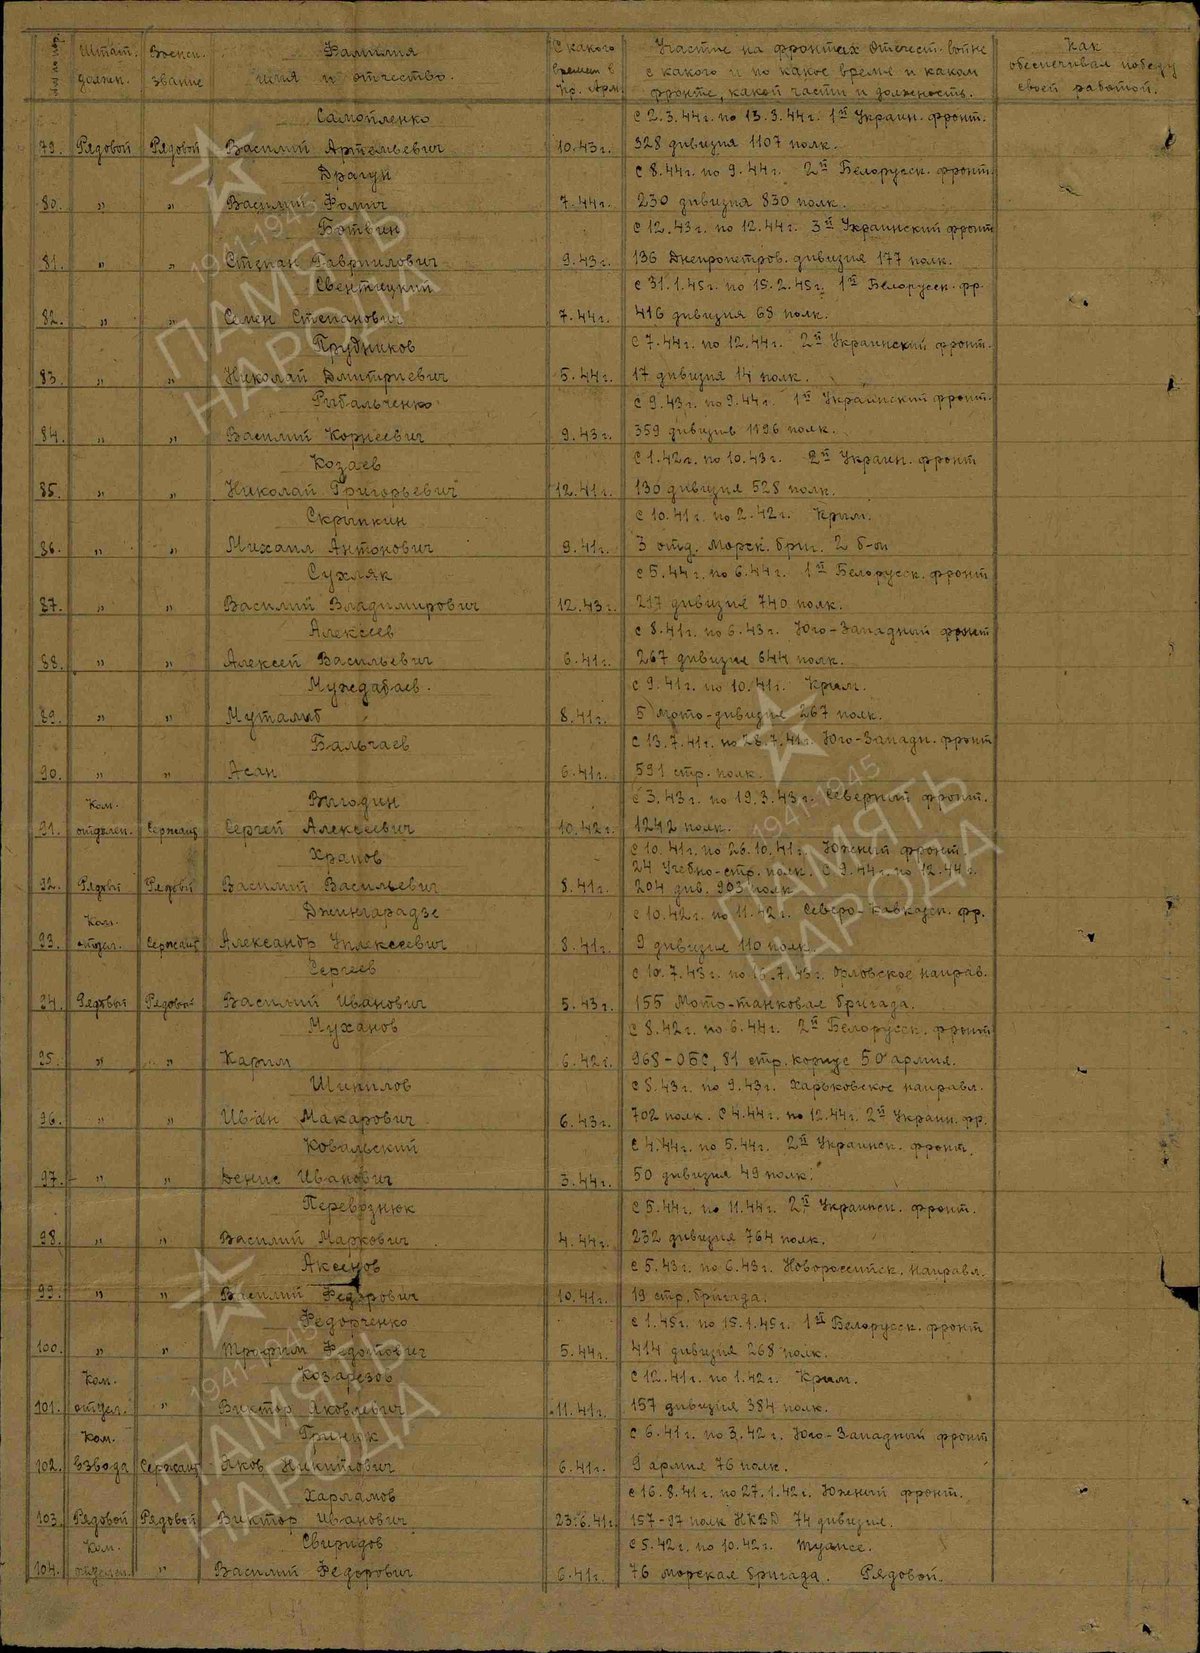 №№ по пор.
Штат. должн.
Воен. звание
Фамилия имя и отчество.
С какого времен. в Кр. Арм.
Участие на фронтах Отечест. войне с какого и по какое время и каком фронте, какой части и должность.
Как обеспечивал победу своей работой.
Самойленко с 2.3.44г. по 13.3.44г. 1й Украин. фронт.
79. Рядовой Рядовой Василий Артемьевич 10.43г. 328 дивизия 1107 полк.
Драгун с 8.44г. по 9.44г. 2й Белорусск. фронт.
80. " " Василий Фомич 7.44г. 230 дивизия 830 полк.
Ботвин с 12.43г. по 12.44г. 3й Украинский фронт
81. " " Степан Гавриилович 9.43г. 136 Днепропетров. дивизия 177 полк.
Свентицкий с 31.1.45г. по 15.2.45г. 1й Белорусск. фр.
82. " " Семен Степанович 7.44г. 416 дивизия 68 полк.
Прудников с 7.44г. по 12.44г. 2й Украинский фронт.
83. " " Николай Дмитриевич 5.44г. 17 дивизия 14 полк.
Рыбальченко с 9.43г. по 9.44г. 1й Украинский фронт.
84. " " Василий Корнеевич 9.43г. 359 дивизия 1196 полк.
Козаев с 1.42г. по 10.43г. 2й Украин. фронт
85. " " Николай Григорьевич 12.41г. 130 дивизия 528 полк.
Скрыпкин с 10.41г. по 2.42г. Крым.
86. " " Михаил Антонович 9.41г. 3 отд. морск. бриг. 2 б-он
Сухляк с 5.44г. по 6.44г. 1й Белорусск. фронт
87. " " Василий Владимирович 12.43г. 217 дивизия 740 полк.
Алексеев с 8.41г. по 6.43г. Юго-Западный фронт
88. " " Алексей Васильевич 6.41г. 267 дивизия 644 полк.
Муждабаев. с 9.41г. по 10.41г. Крым.
89. " " Муталиб 8.41г. 5 мото-дивизия 267 полк.
Бальчаев с 13.7.41г. по 28.7.41г. Юго-Западн. фронт
90. " " Асан 6.41г. 591 стр. полк.
Ком. Выгодин с 3.43г. по 19.3.43г. Северный фронт.
91. отделен. Сержант Сергей Алексеевич 10.42г. 1242 полк.
Храпов с 10.41г. по 26.10.41г. Южный фронт.
24 Учебно-стр. полк. с 9.44г. по 12.44г.
92. Рядовой Рядовой Василий Васильевич 8.41г. 204 див. 903 полк
Ком. Джинчарадзе с 10.42г. по 11.42г. Северо-Кавказск. фр.
93. отдел. Сержант Александр Алексеевич 8.41г. 9 дивизия 110 полк.
Сергеев с 10.7.43г. по 15.7.43г. Орловское направ.
94. Рядовой Рядовой Василий Иванович 5.43г. 155 Мото-танковая бригада.
Муханов с 8.42г. по 6.44г. 2й Белорусск. фронт
95. " " Карим 6.42г. 968-ОБС, 81 стр. корпус 50 армия.
Шипилов с 8.43г. по 9.43г. Харьковское направл.
96. " " Иван Макарович 6.43г. 702 полк. С 4.44г. по 12.44г. 2й Украин. фр.
Ковальский с 4.44г. по 5.44г. 2й Украинск. фронт.
97. " " Денис Иванович 3.44г. 50 дивизия 49 полк.
Перевознюк с 5.44г. по 11.44г. 2й Украинск. фронт.
98. " " Василий Маркович 4.44г. 232 дивизия 764 полк.
Аксенов с 5.43г. по 6.43г. Новороссийск. направл.
99. " " Василий Федорович 10.41г. 19 стр. бригада.
Федорченко с 1.45г. по 15.1.45г. 1й Белорусск. фронт
100. " " Трофим Федотович 5.44г. 414 дивизия 268 полк.
Ком. Козарезов с 12.41г. по 1.42г. Крым.
101. отдел. " Виктор Яковлевич 11.41г. 157 дивизия 384 полк.
Ком. Гринюк с 6.41г. по 3.42г. Юго-Западный фронт
102. взвода Сержант Яков Никитович 6.41г. 9 армия 76 полк.
Харламов с 16.8.41г. по 27.1.42г. Южный фронт.
103. Рядовой Рядовой Виктор Иванович 23.6.41г. 157-97 полк НКВД 74 дивизия.
Ком. Свиридов с 5.42г. по 10.42г. Туапсе.
104. отделен. " Василий Федорович 6.41г. 76 морская бригада. Рядовой.
1941-1945
ПАМЯТЬ
НАРОДА
1941-1945
ПАМЯТЬ
НАРОДА
1941-1945
ПАМЯТЬ
НАРОДА